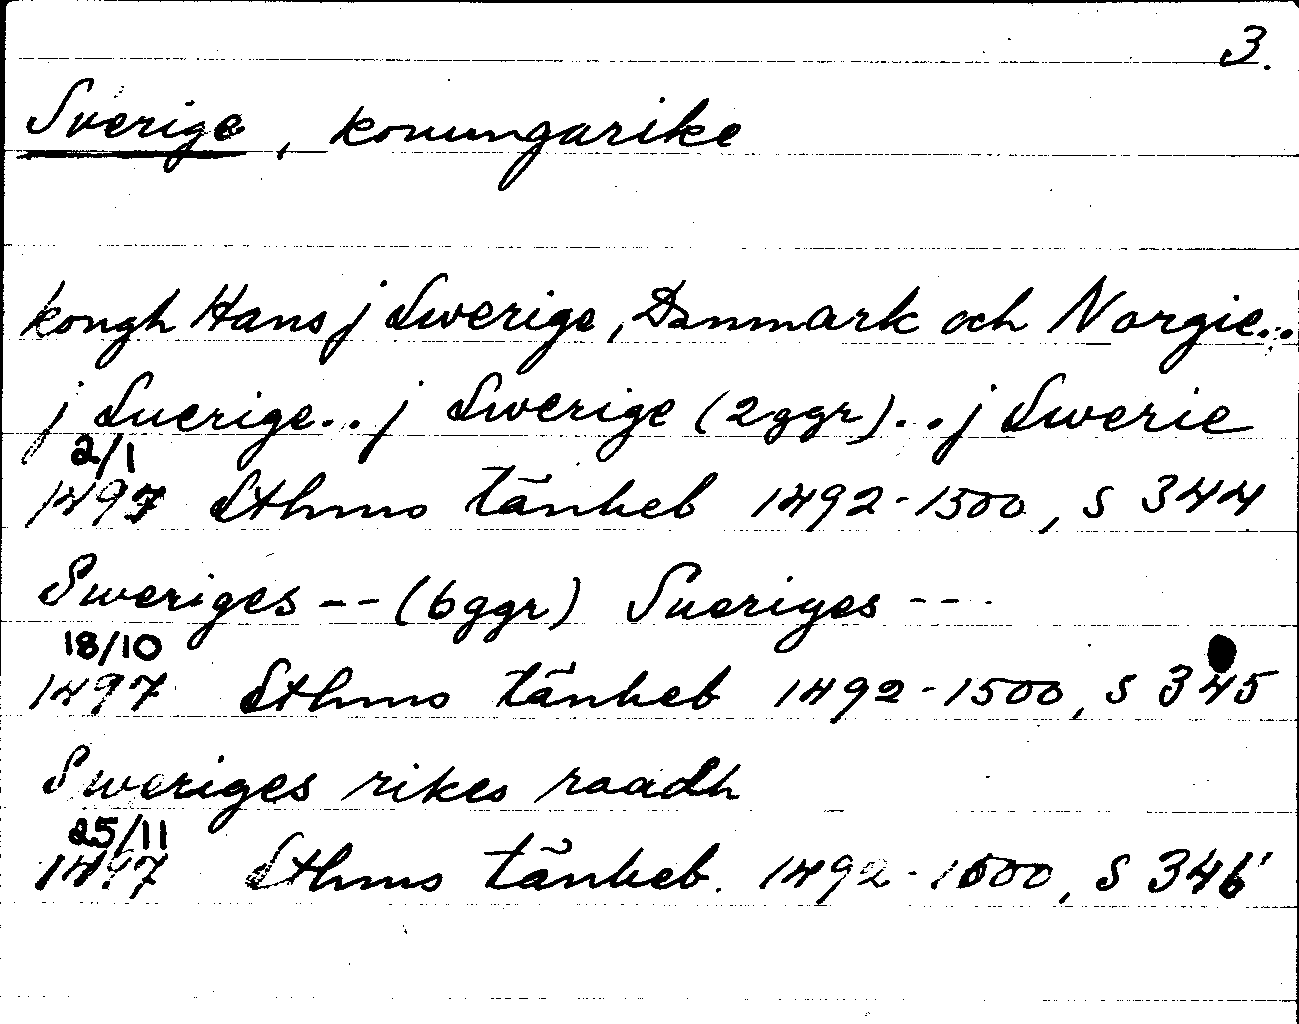 3.
Sverige, konungarike
kongh Hans j Swerige, Danmark och Norgie...
j Suerige.. j Swerige (2ggr)... j Swerie
2/1
1497 Sthms tänkeb 1492-1500, s 344
Sweriges -- (6ggr) Sueriges ---
18/10
1497 Sthms tänkeb 1492-1500, s 345
Sweriges rikes raadh
25/11
1497 Sthms tänkeb. 1492-1500, s 346